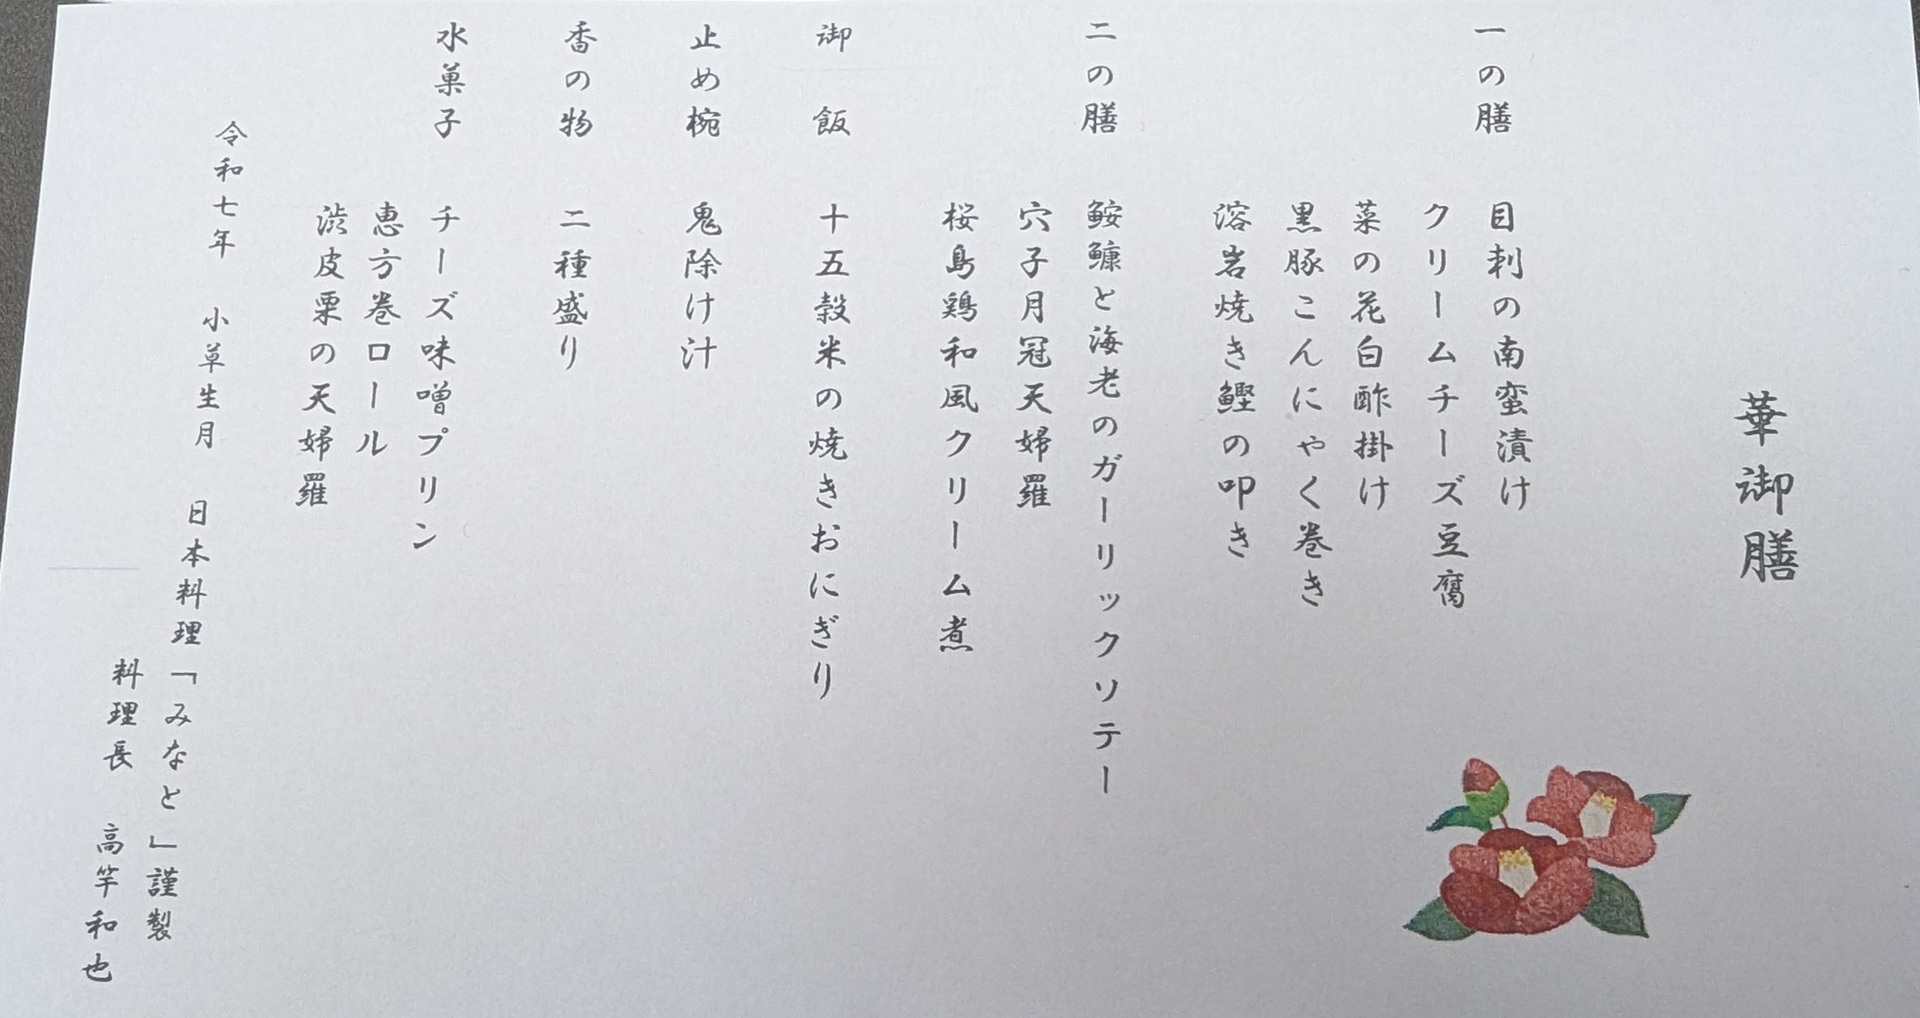 華御膳
一の膳 目刺の南蛮漬け
クリームチーズ豆腐
菜の花白酢掛け
黒豚こんにゃく巻き
溶岩焼き鰹の叩き
二の膳 鮟鱇と海老のガーリックソテー
穴子月冠天婦羅
桜島鶏和風クリーム煮
御 飯 十五穀米の焼きおにぎり
止め椀 鬼除け汁
香の物 二種盛り
水菓子 チーズ味噌プリン
恵方巻ロール
渋皮栗の天婦羅
令和七年 小草生月 日本料理「みなと」謹製
料理長 高竿和也